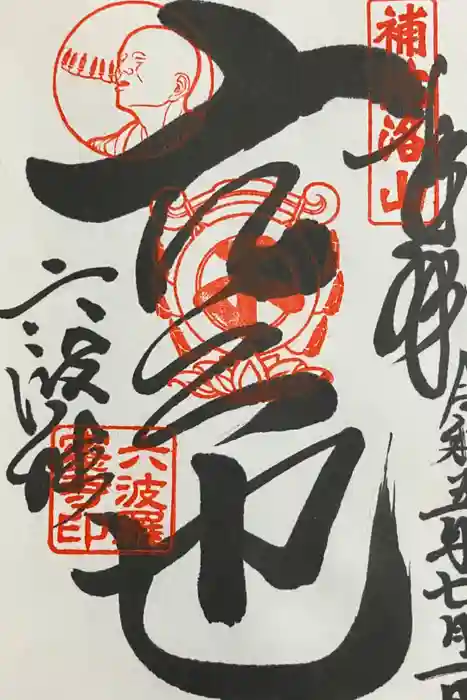 補陀洛山
奉拝
令和五年七月一日
空也
六波羅
六波羅
蜜寺印